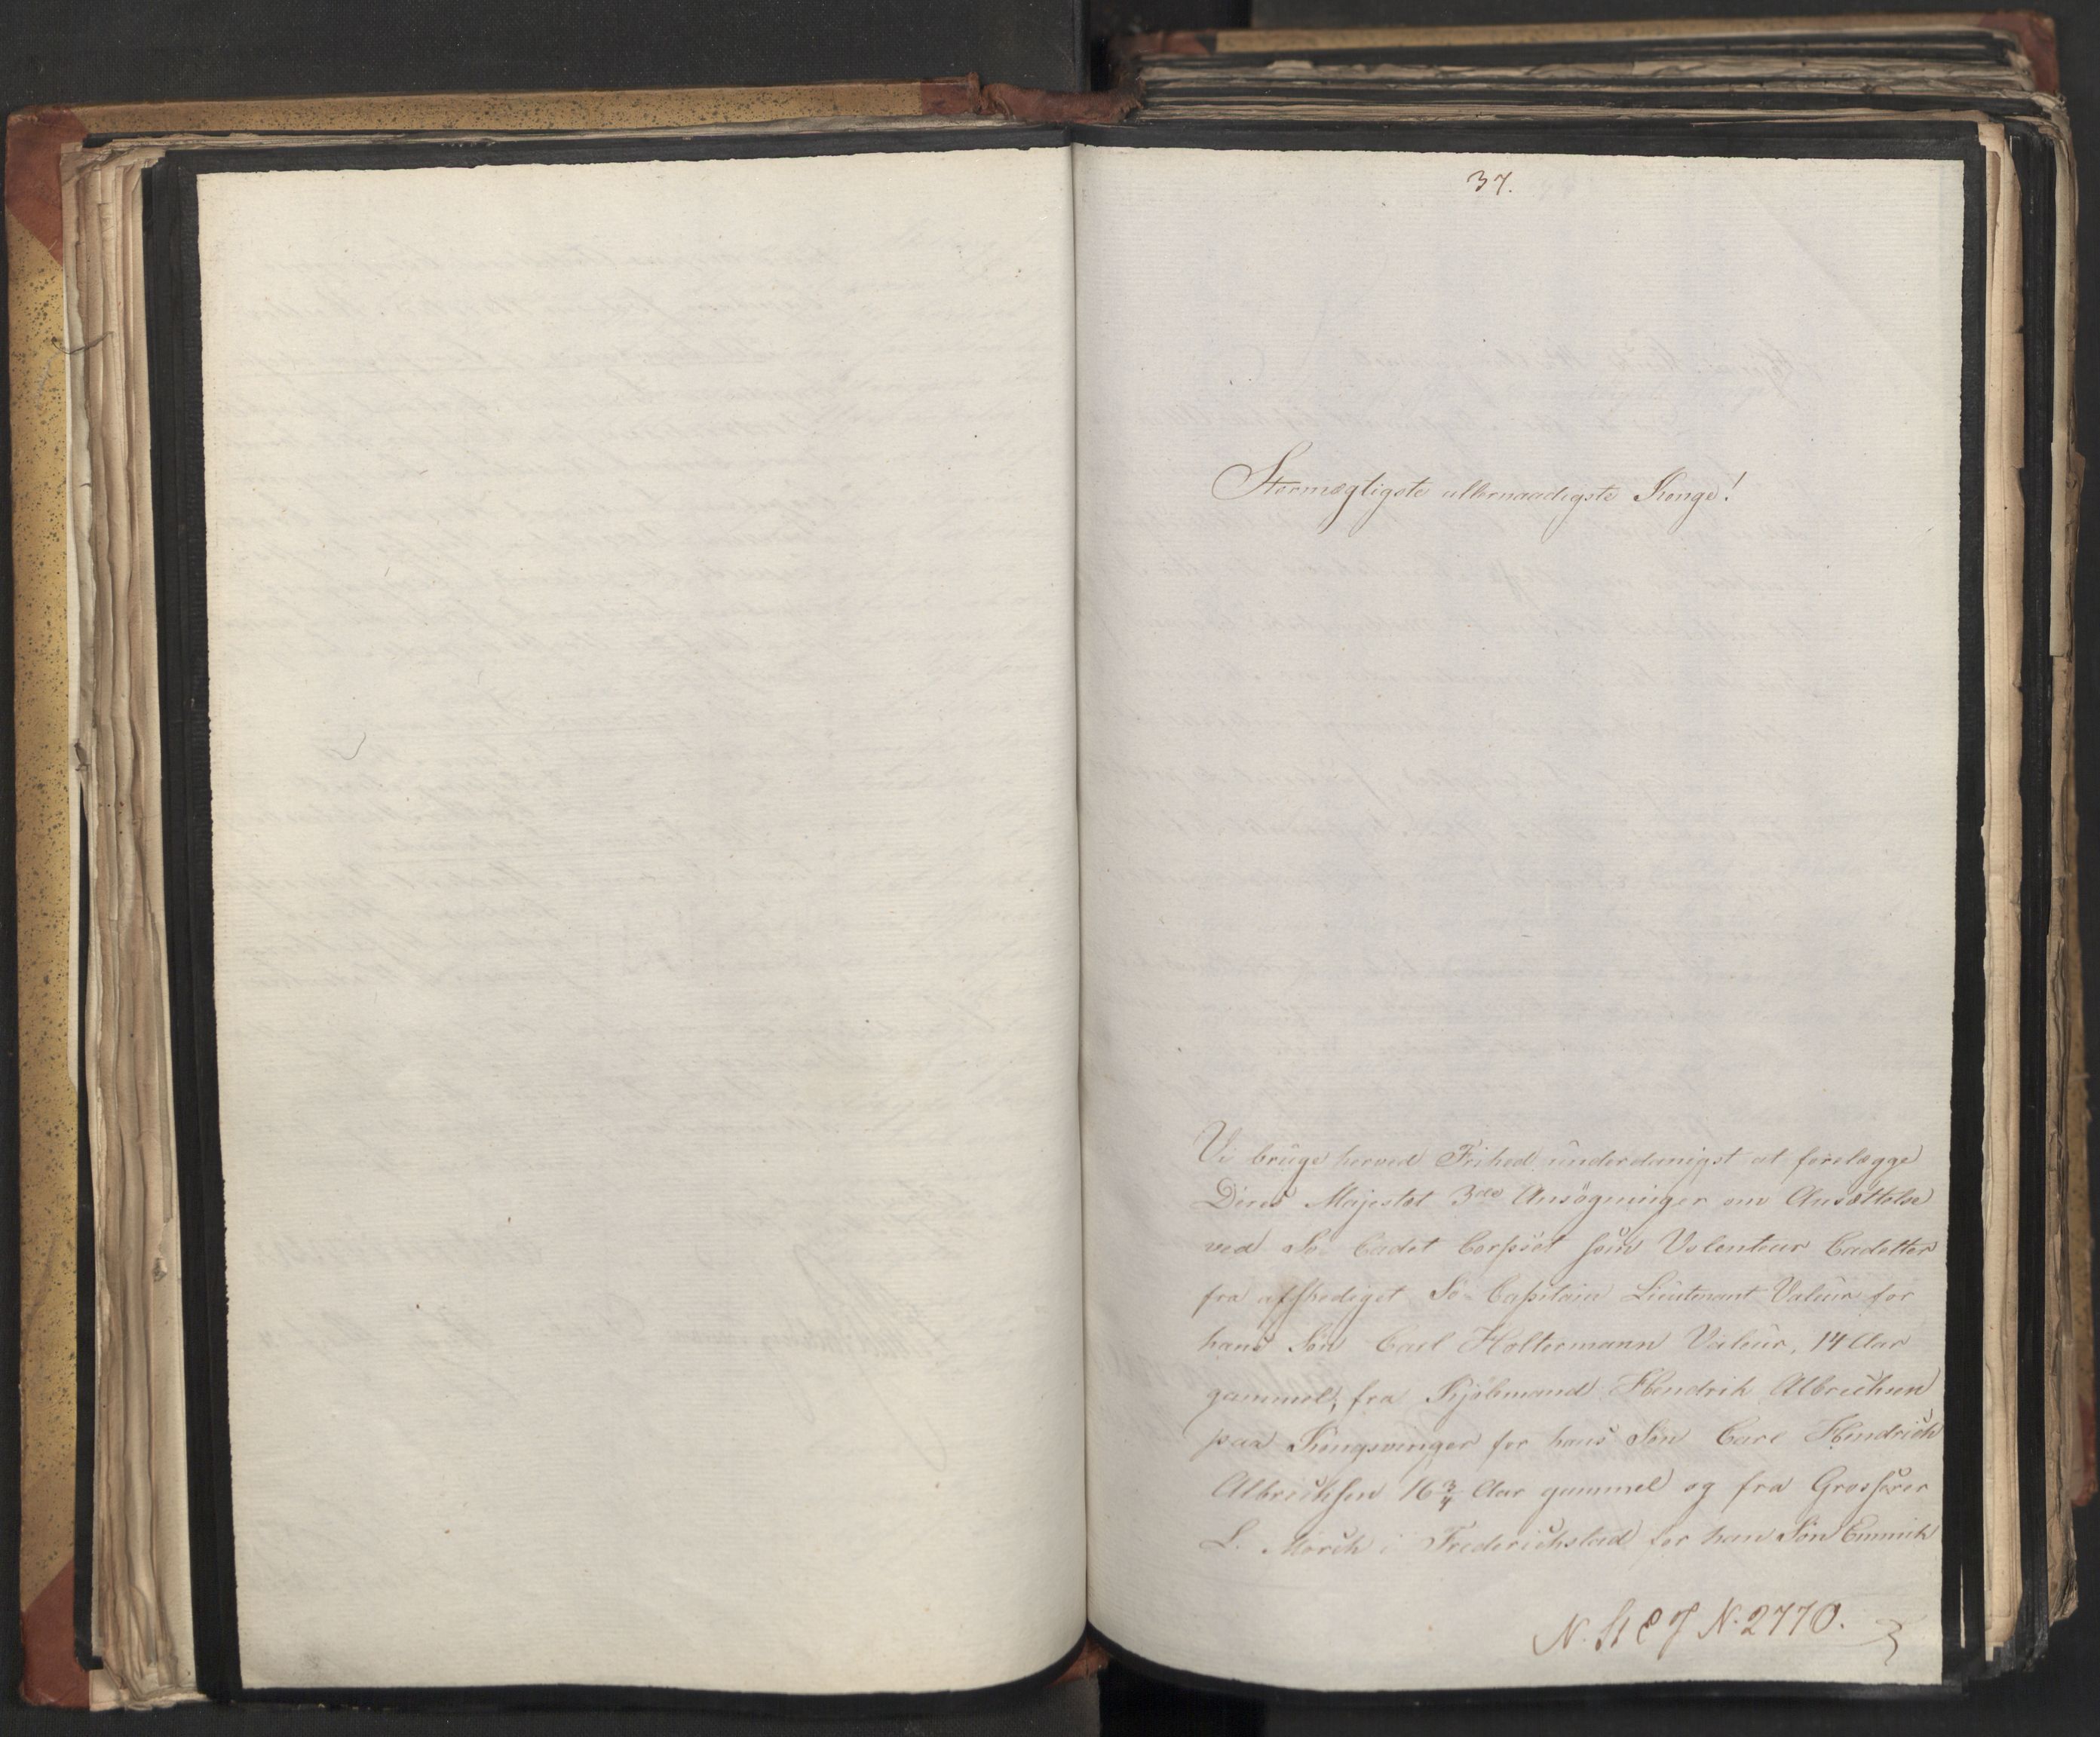 37.
Stormægtigste allernaadigste Konge!
Vi bruge herved Frihed underdanigst at forelægge
Deres Majestæt 3de Ansøgninger om Ansættelse
ved Sø Cadet Corpset som Volonteur Cadetter
fra afskediget Sø-Capitain Lieutenant Valeur for
hans Søn Carl Holtermann Valeur, 14 Aar
gammel, fra Kjøbmand Hendrik Albrichsen
paa Kongsvinger for hans Søn Carl Hendrich
Albrichsen 16 3/4 Aar gammel og fra Grosserer
L. Morch i Frederichstad for han Søn Emmich
N. St C J N. 2770.